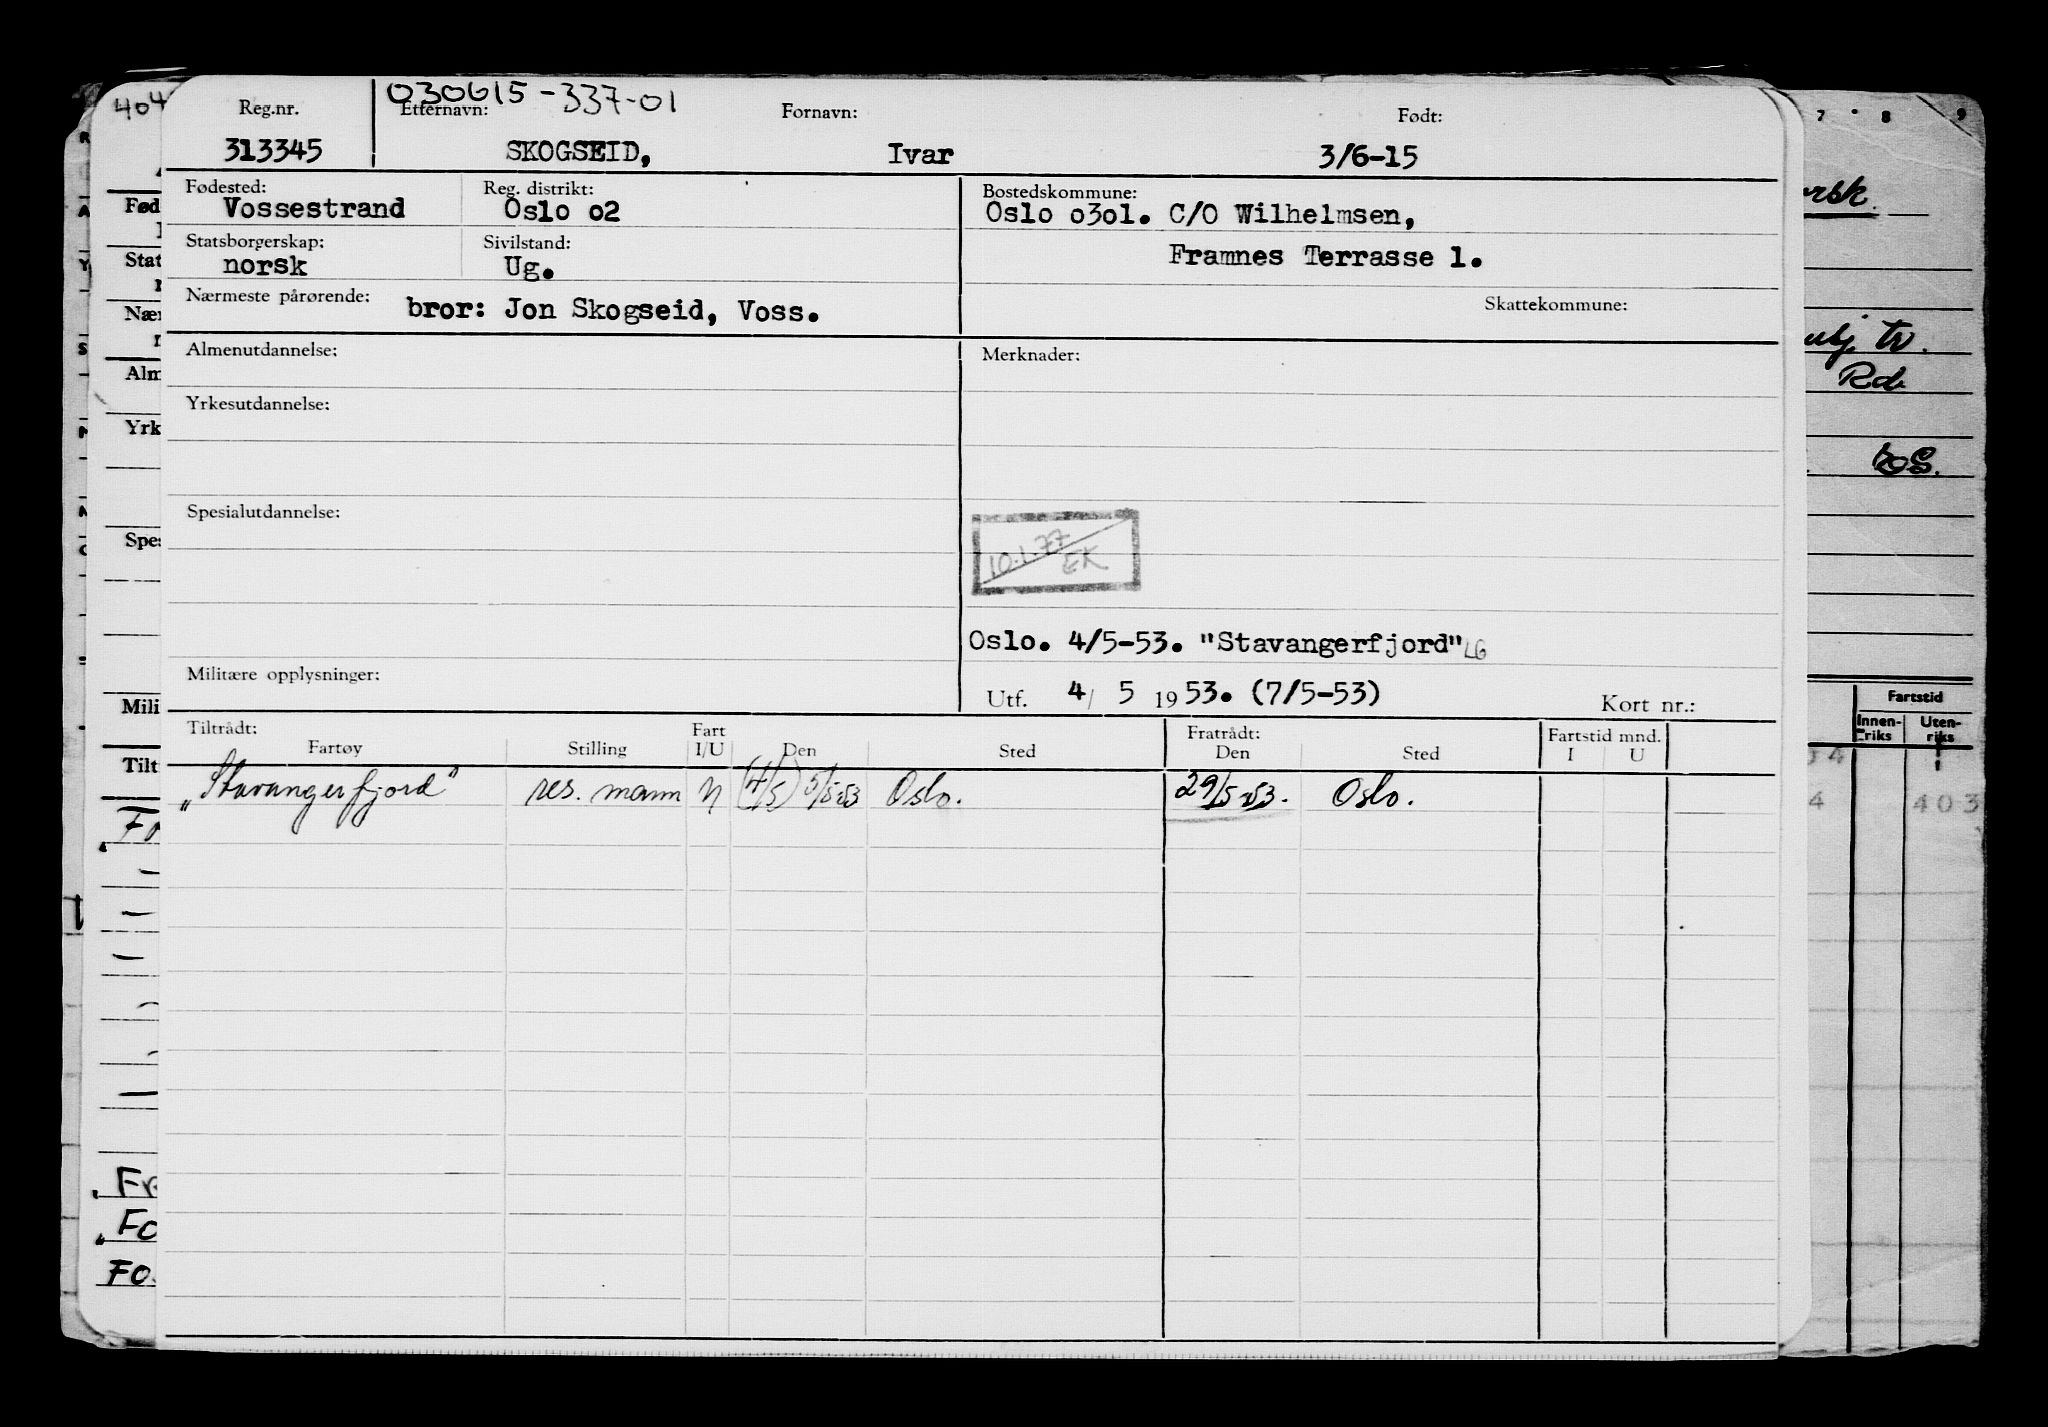 404
030615-337-01
Reg.nr. Etternavn: Fornavn: Født:
313345 SKOGSEID, Ivar 3/6-15
Fødested: Reg. distrikt: Bostedskommune:
Vossestrand Oslo o2 Oslo o3o1. C/O Wilhelmsen,
Statsborgerskap: Sivilstand:
norsk Ug. Framnes Terrasse 1.
Nærmeste pårørende: bror: Jon Skogseid, Voss. Skattekommune:
Almenutdannelse: Merknader:
Yrkesutdannelse:
Spesialutdannelse:
10.1.77
EK
Oslo. 4/5-53. "Stavangerfjord" LG
Militære opplysninger:
Utf. 4/ 5 1953. (7/5-53) Kort nr.:
Tiltrådt: Fart Fratrådt: Fartstid mnd.
Fartøy Stilling I/U Den Sted Den Sted I U
"Stavangerfjord" res. mann U (4/5) 5/5-53 Oslo. 29/5-53. Oslo.
Fød
Stat
Nær
Alm
Yrk
Spes
Mili
Tilt
Fr
Fo
Fo
7 8 9
Rd.
Fartstid
Innen-
riks
Uten-
riks
4 403